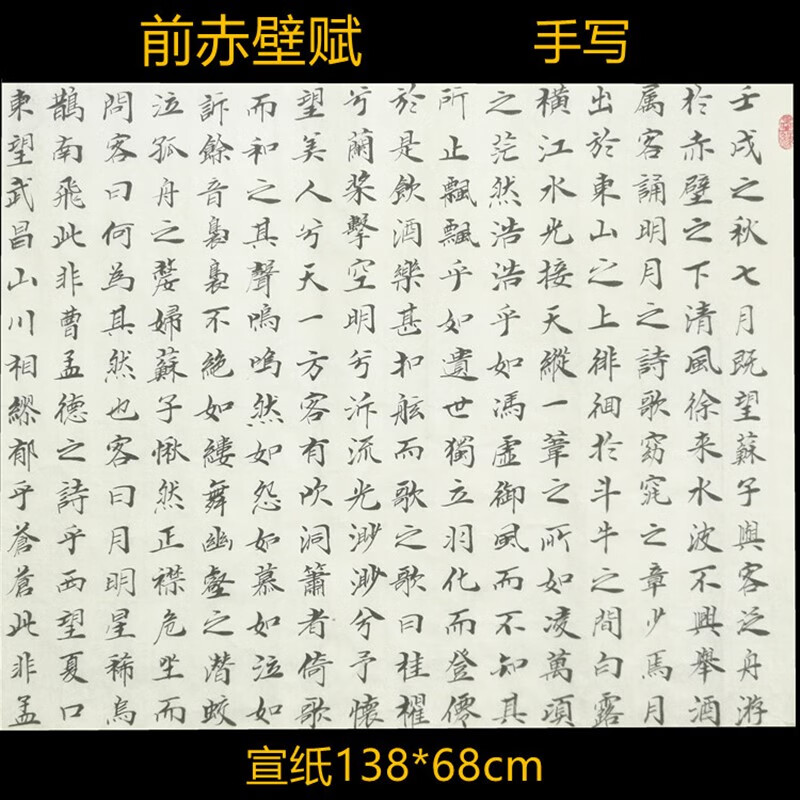 前赤壁赋 手写
壬戌之秋七月既望蘇子與客泛舟游
於赤壁之下清風徐来水波不興舉酒
属客誦明月之詩歌窈窕之章少焉月
出於東山之上徘徊於斗牛之間白露
横江水光接天縱一葦之所如凌萬頃
之茫然浩浩乎如馮虚御風而不知其
所止飄飄乎如遺世獨立羽化而登僊
於是飲酒樂甚扣舷而歌之歌曰桂櫂
兮蘭槳擊空明兮泝流光渺渺兮予懷
望美人兮天一方客有吹洞簫者倚歌
而和之其聲嗚嗚然如怨如慕如泣如
訴餘音裊裊不絶如縷舞幽壑之潜蛟
泣孤舟之嫠婦蘇子愀然正襟危坐而
問客曰何為其然也客曰月明星稀烏
鵲南飛此非曹孟德之詩乎西望夏口
東望武昌山川相繆郁乎蒼蒼此非孟
宣纸138*68cm